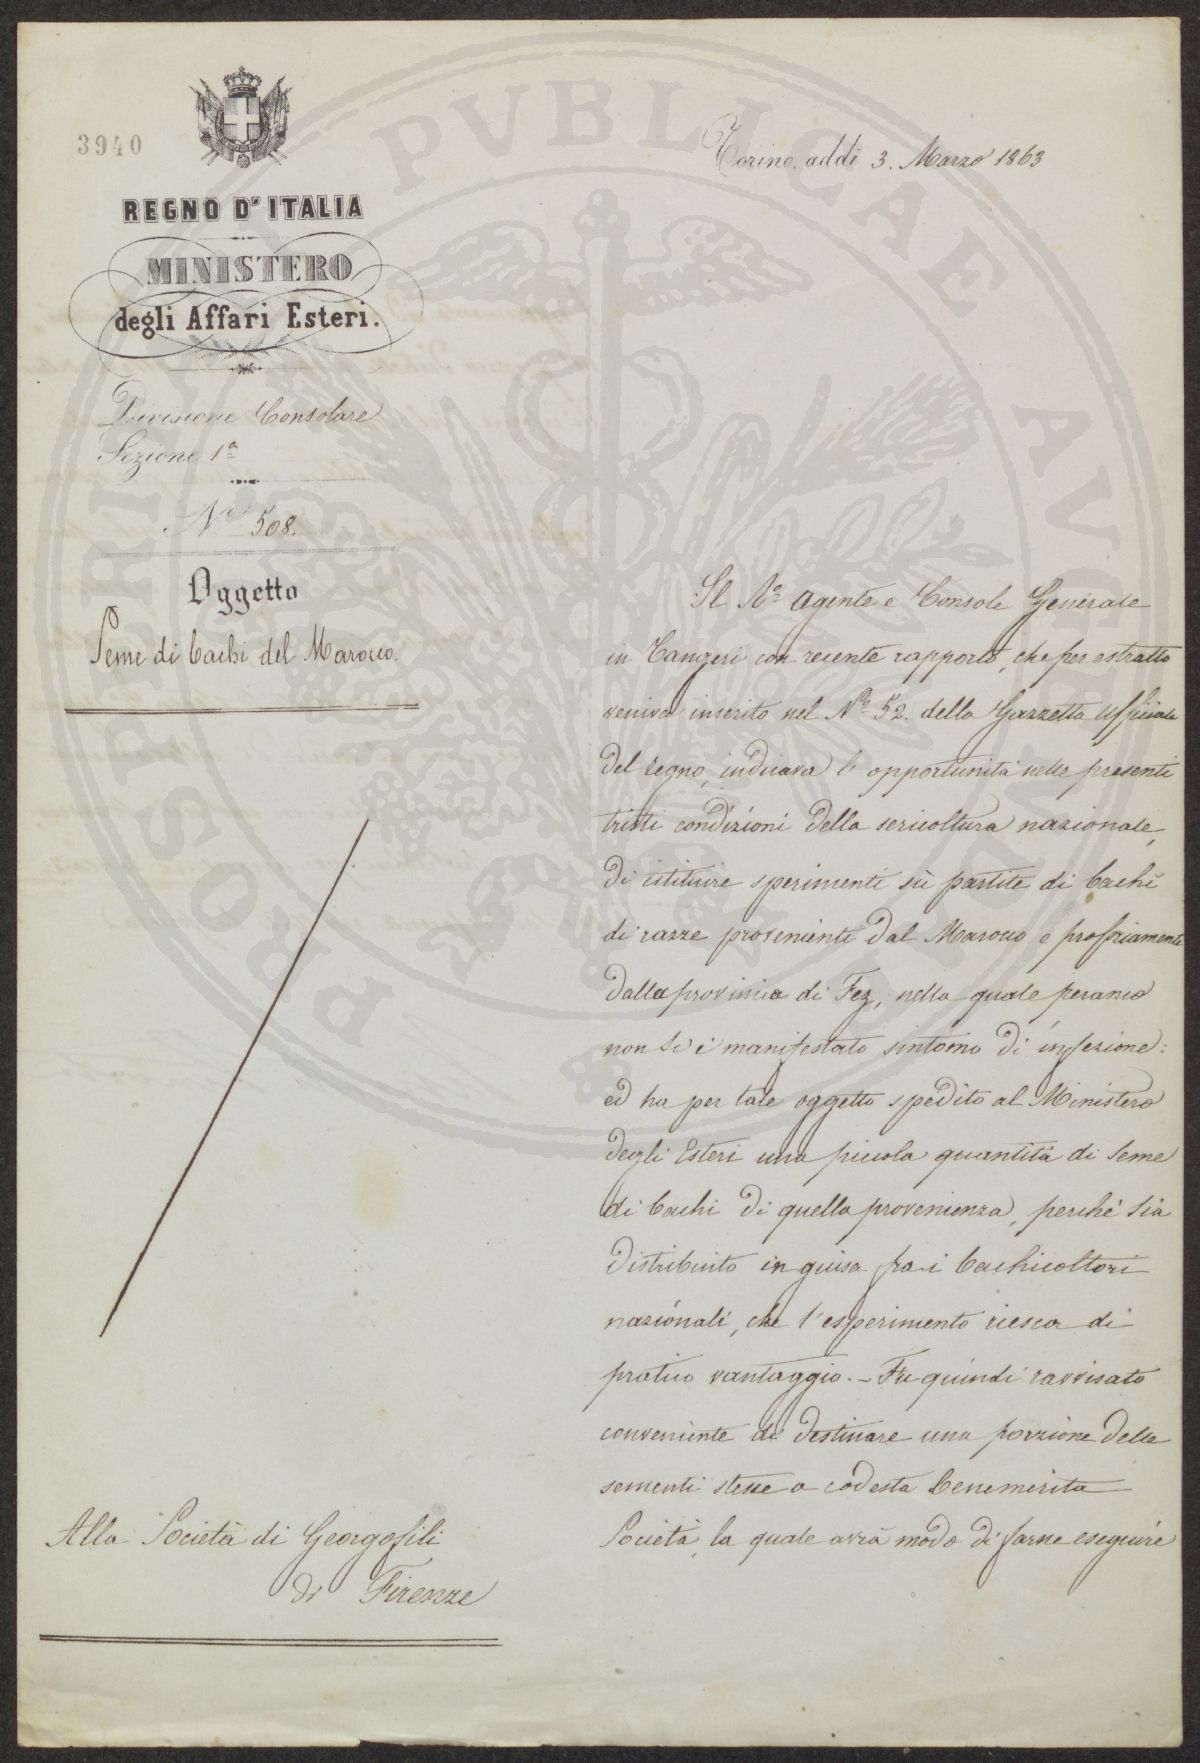 3940
Torino, addì 3. Marzo 1863
REGNO D'ITALIA
MINISTERO
degli Affari Esteri.
Divisione Consolare
Sezione 1ª
Nº 508.
Oggetto
Seme di bachi del Marocco.
Il Rº Agente e Console Generale
in Tangeri con recente rapporto, che per estratto
veniva inserito nel Nº 52. della Gazzetta Ufficiale
del regno, indicava l'opportunità nelle presenti
tristi condizioni della sericoltura nazionale,
di istituire sperimenti sù partite di bachi
di razze provenienti dal Marocco e propriamente
dalla provincia di Fez, nella quale peranco
non si è manifestato sintomo di infezione:
ed ha per tale oggetto spedito al Ministero
degli Esteri una piccola quantità di seme
di bachi di quella provenienza, perchè sia
distribuito in guisa fra i bachicoltori
nazionali, che l'esperimento riesca di
pratico vantaggio. - Fu quindi ravvisato
conveniente di destinare una porzione delle
sementi stesse a codesta benemerita
Società, la quale avrà modo di farne eseguire
Alla Società di Georgofili
di Firenze
PROSPERITATI PVBLICAE AVGENDAE